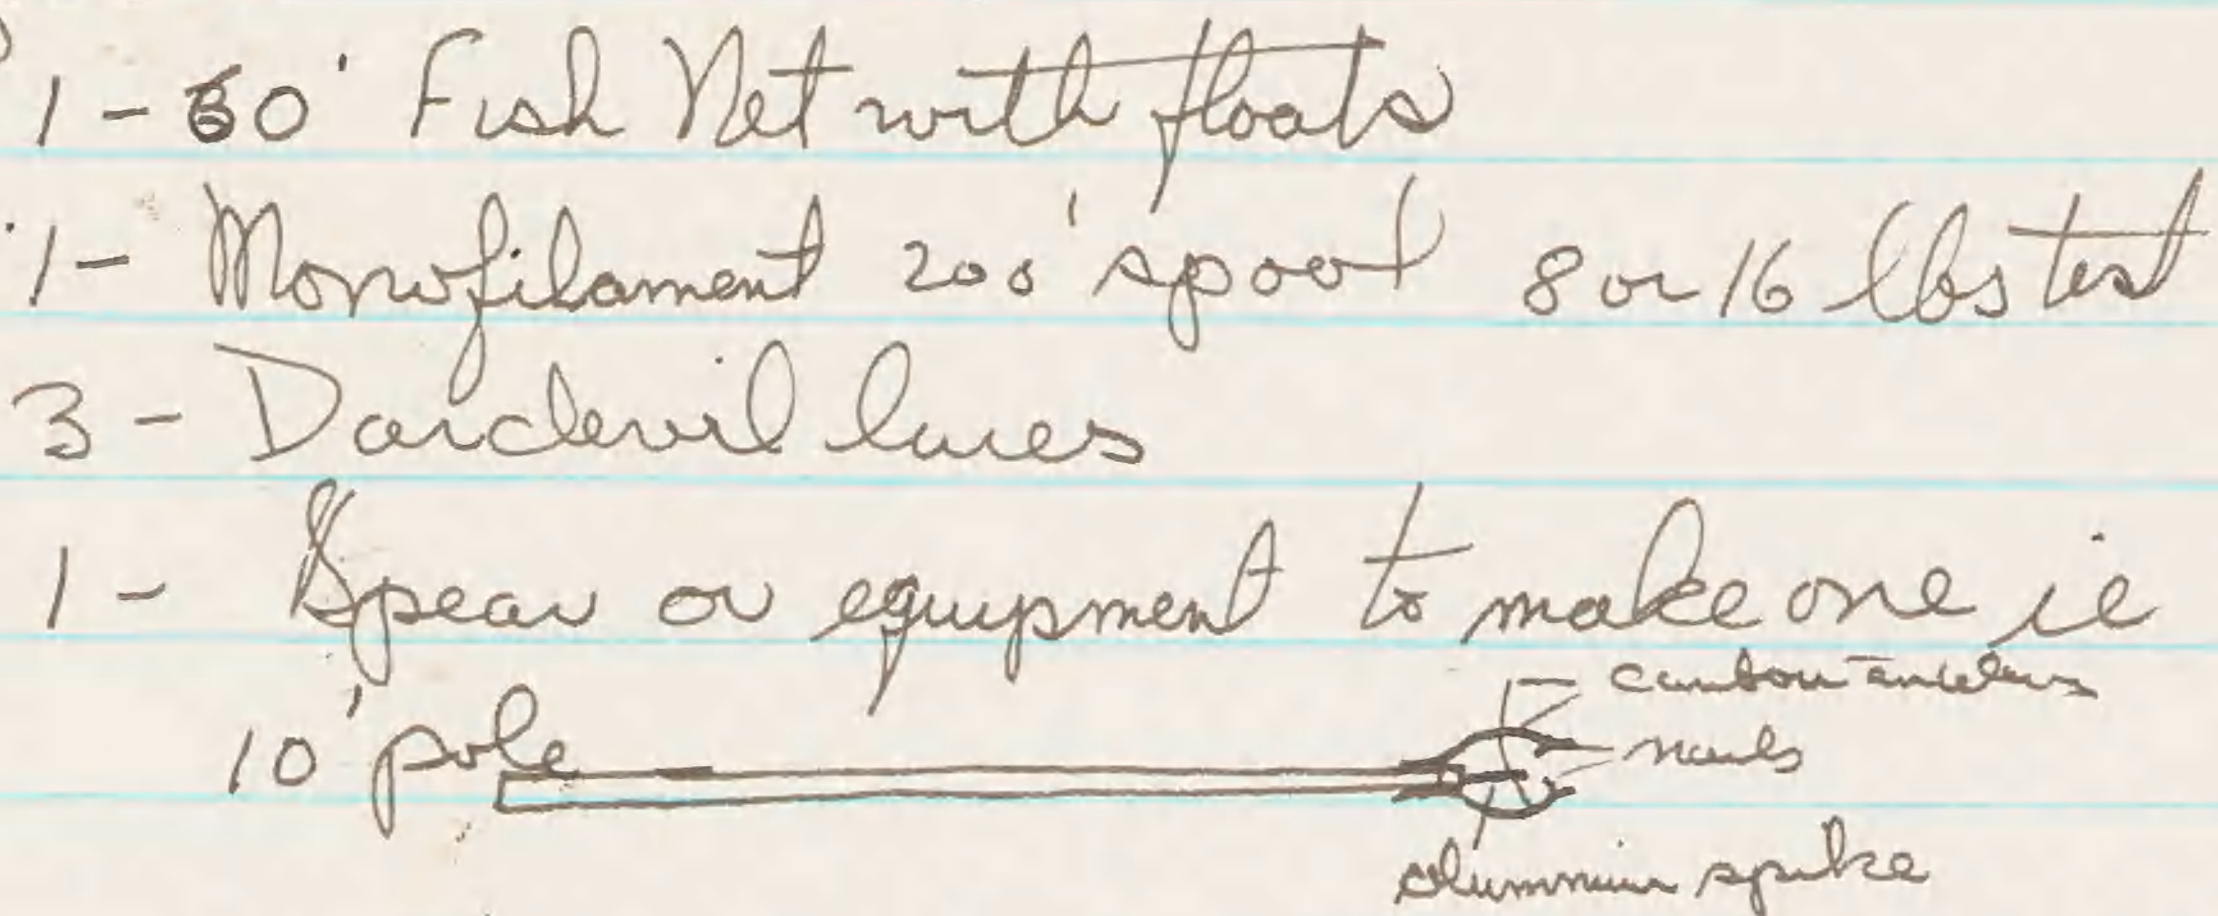 1 - 60' Fish Net with floats
1 - Monofilament 200' spool 8 or 16 lbs test
3 - Dardevil lures
1 - Spear or equipment to make one ie
caribou antlers
10' pole
nails
aluminium spike